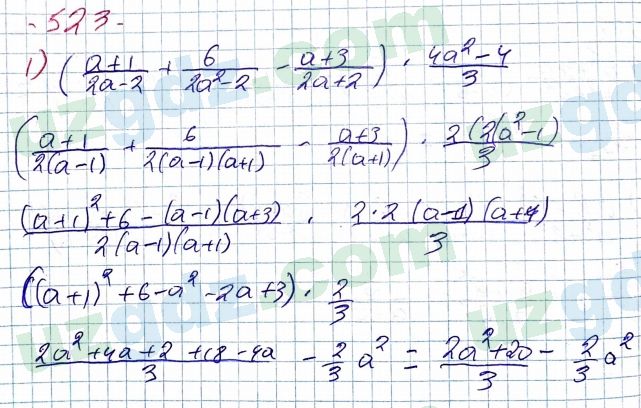 -523-
1) ( (a+1)/(2a-2) + 6/(2a²-2) - (a+3)/(2a+2) ) · (4a²-4)/3
( (a+1)/(2(a-1)) + 6/(2(a-1)(a+1)) - (a+3)/(2(a+1)) ) · 2(2(a²-1)/3
((a+1)²+6-(a-1)(a+3))/(2(a-1)(a+1)) · (2·2(a-1)(a+1))/3
((a+1)²+6-a²-2a+3) · 2/3
(2a²+4a+2+18-4a)/3 - 2/3 a² = (2a²+20)/3 - 2/3 a²
uzgdz.com